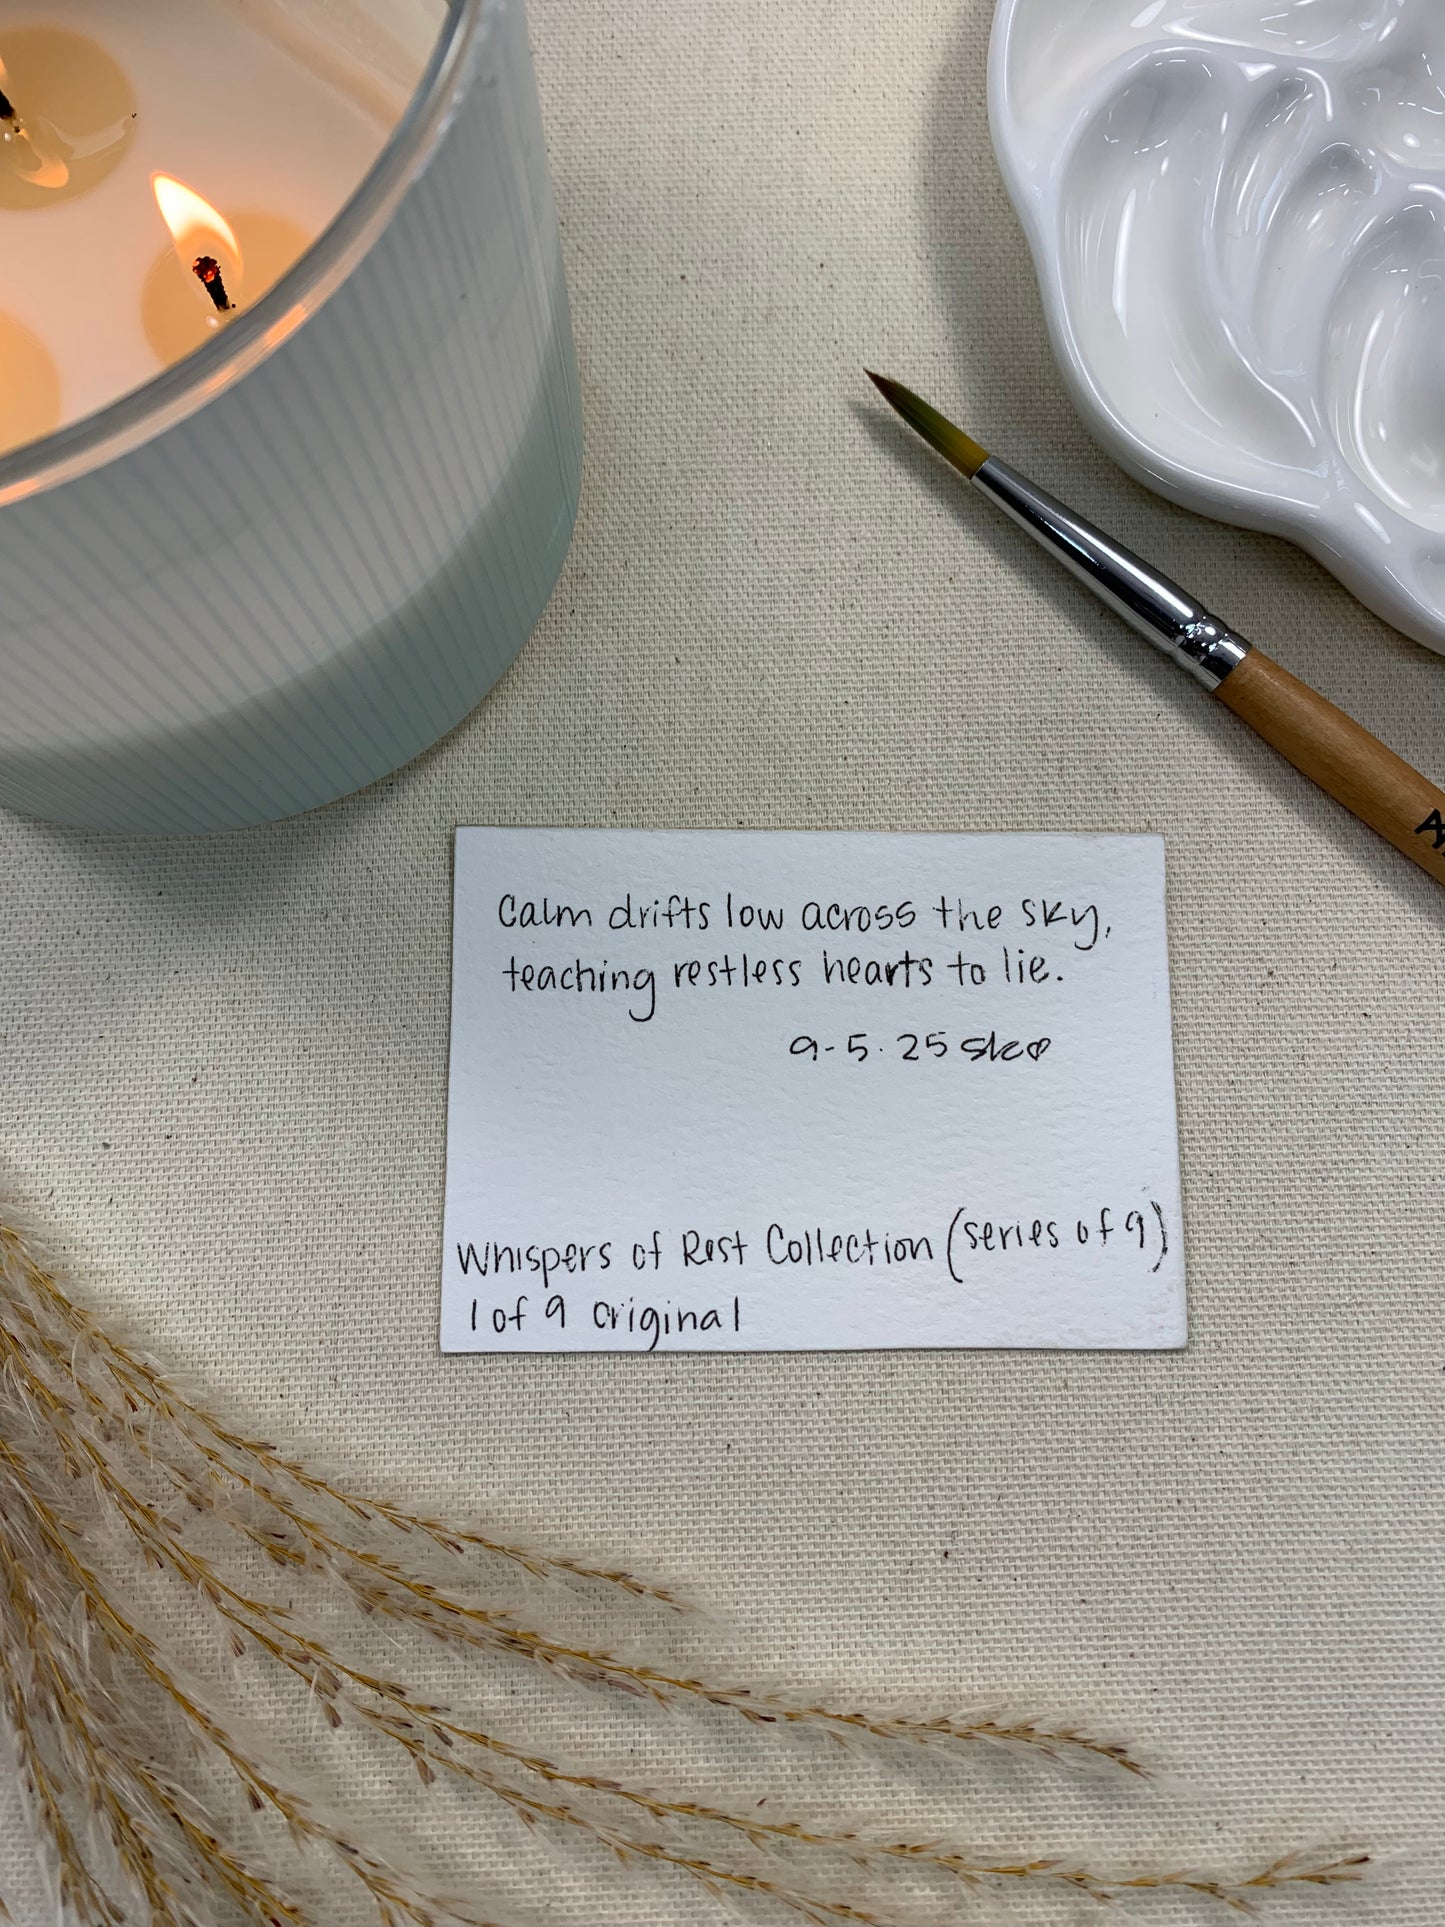 Calm drifts low across the sky,
teaching restless hearts to lie.
9-5.25
Whispers of Rest Collection (series of 9)
1 of 9 original